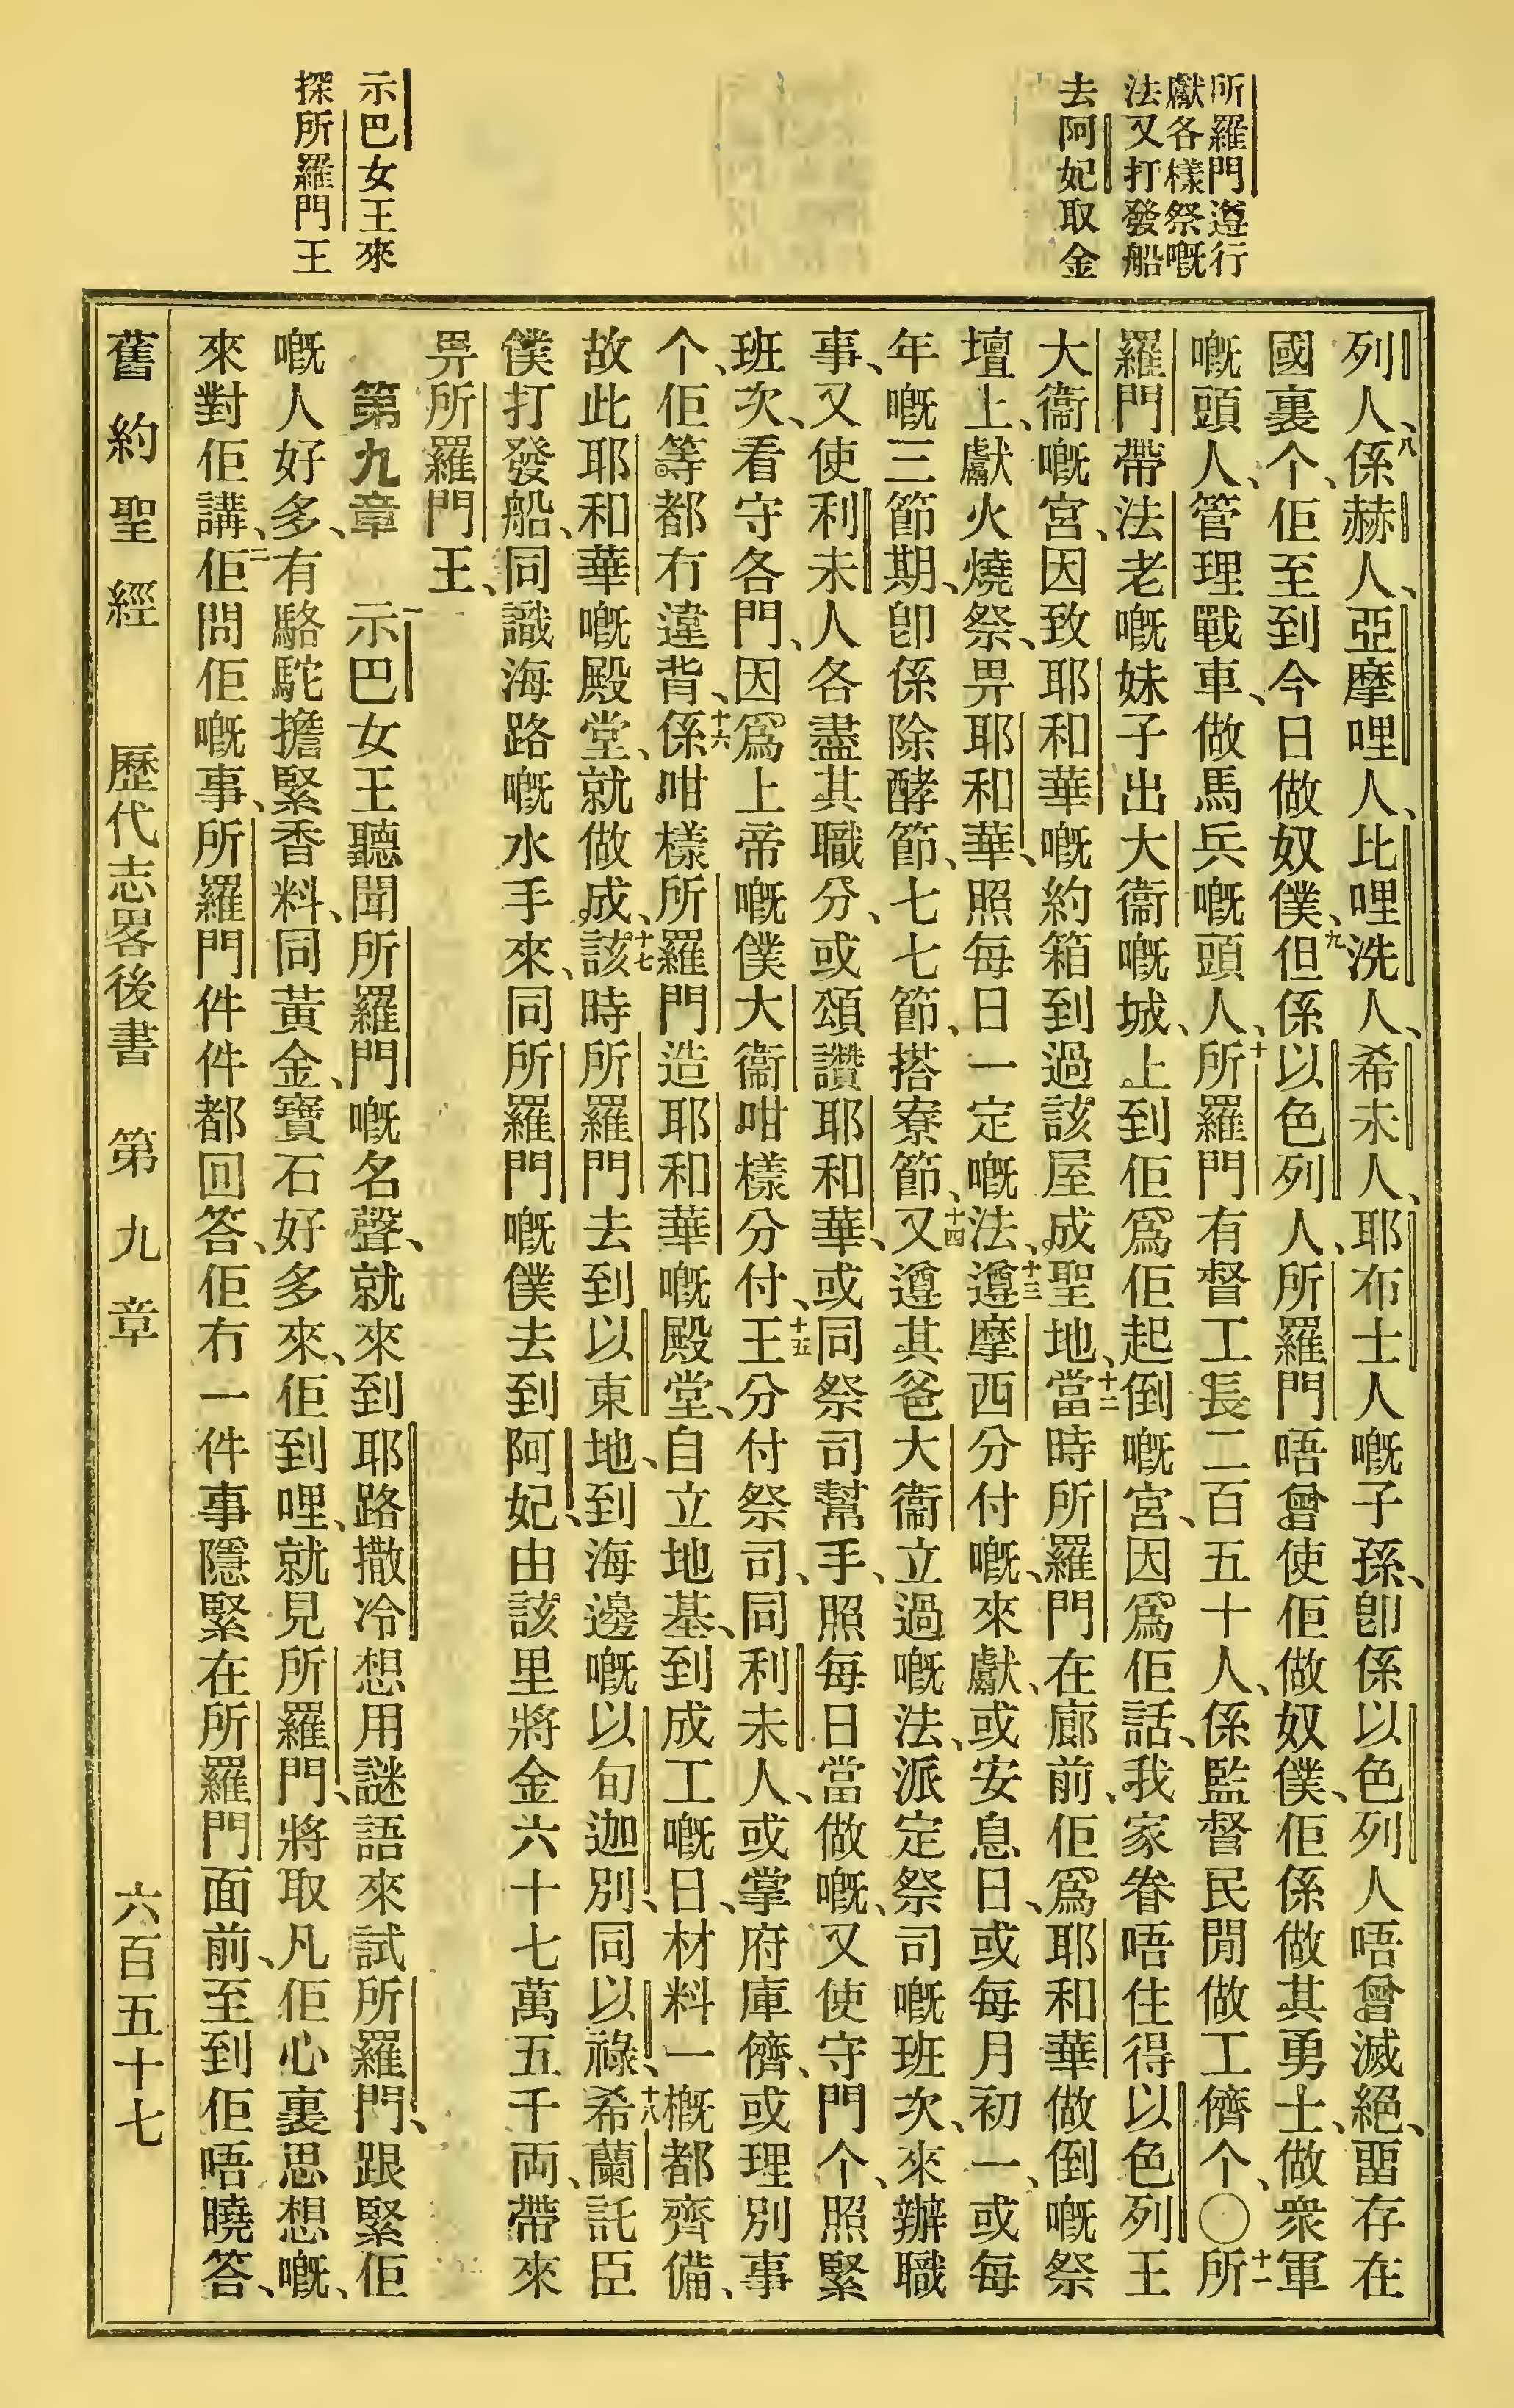 所羅門遵行
獻各樣祭嘅
法又打發船
去阿妃取金
示巴女王來
探所羅門王
列人、八係赫人、亞摩哩人、比哩洗人、希未人、耶布士人嘅子孫、卽係以色列人唔曾滅絕、畱存在
國裏个、佢至到今日做奴僕、九但係以色列人、所羅門唔曾使佢做奴僕、佢係做其勇士、做衆軍
嘅頭人、管理戰車、做馬兵嘅頭人、十所羅門有督工長二百五十人、係監督民閒做工儕个、〇十一所
羅門帶法老嘅妹子出大衞嘅城、上到佢爲佢起倒嘅宮、因爲佢話、我家眷唔住得以色列王
大衞嘅宮、因致耶和華嘅約箱到過該屋成聖地、十二當時所羅門在廊前、佢爲耶和華做倒嘅祭
壇上、獻火燒祭、畀耶和華、照每日一定嘅法、十三遵摩西分付嘅、來獻、或安息日、或每月初一、或每
年嘅三節期、卽係除酵節、七七節、搭寮節、十四又遵其爸大衞立過嘅法、派定祭司嘅班次、來辦職
事、又使利未人各盡其職分、或頌讚耶和華、或同祭司幫手、照每日當做嘅、又使守門个、照緊
班次、看守各門、因爲上帝嘅僕大衞咁樣分付、十五王分付祭司、同利未人、或掌府庫儕、或理別事
个、佢等都冇違背、十六係咁樣所羅門造耶和華嘅殿堂、自立地基、到成工嘅日、材料一概都齊備、
故此耶和華嘅殿堂、就做成、十七該時所羅門去到以東地、到海邊嘅以旬迦別、同以祿、十八希蘭託臣
僕打發船、同識海路嘅水手來、同所羅門嘅僕去到阿妃、由該里將金六十七萬五千両、帶來
畀所羅門王、
第九章　一示巴女王聽聞所羅門嘅名聲、就來到耶路撒冷想用謎語來試所羅門、跟緊佢
嘅人好多、有駱駝擔緊香料、同黃金、寶石好多來、佢到哩、就見所羅門、將取凡佢心裏思想嘅、
來對佢講、二佢問佢嘅事、所羅門件件都回答、佢冇一件事隱緊在所羅門面前、至到佢唔曉答、
舊約聖經　歷代志畧後書　第九章　六百五十七